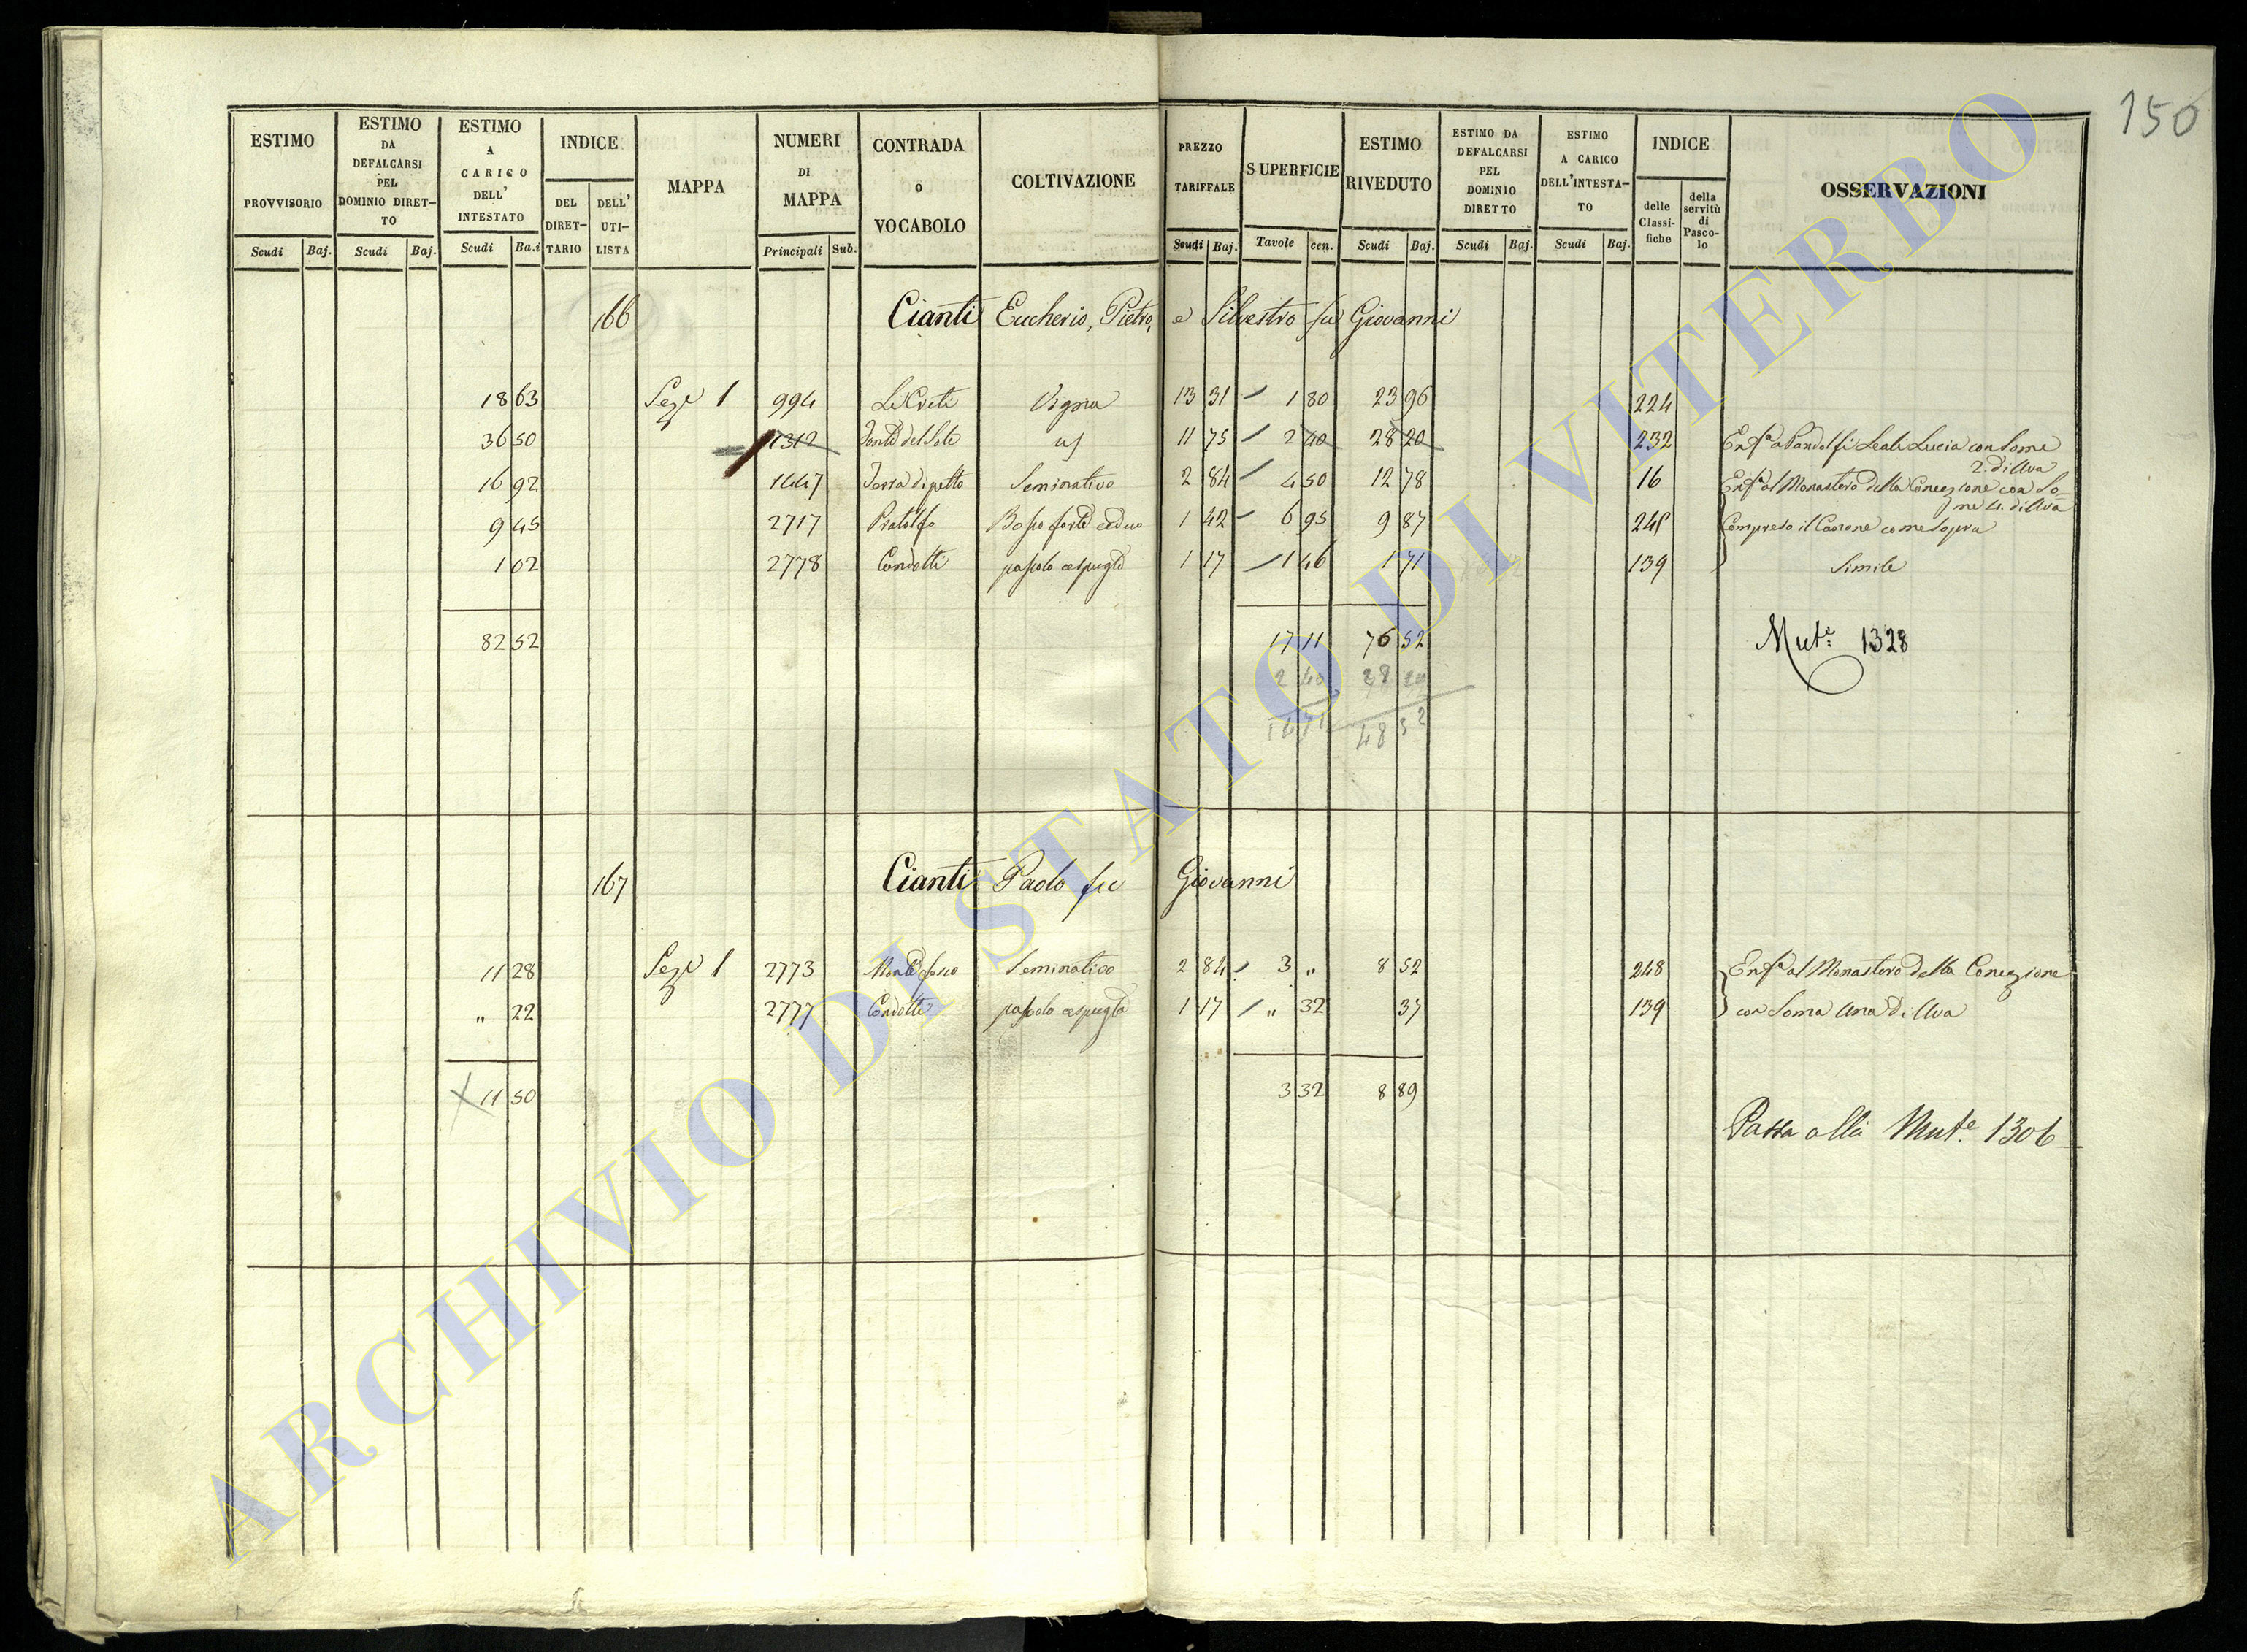 150
ESTIMO PROVVISORIO
ESTIMO DA DEFALCARSI PEL DOMINIO DIRET-TO
ESTIMO A CARICO DELL' INTESTATO
INDICE
DEL DIRET-TARIO
DELL' UTI-LISTA
MAPPA
NUMERI DI MAPPA
CONTRADA O VOCABOLO
COLTIVAZIONE
PREZZO TARIFFALE
SUPERFICIE
ESTIMO RIVEDUTO
ESTIMO DA DEFALCARSI PEL DOMINIO DIRETTO
ESTIMO A CARICO DELL'INTESTA-TO
INDICE
delle Classi-fiche
della servitù di Pasco-lo
OSSERVAZIONI
Scudi Baj. Scudi Baj. Scudi Ba.i Principali Sub. Scudi Baj. Tavole cen. Scudi Baj. Scudi Baj. Scudi Baj.
166 Cianti Eucherio, Pietro, e Silvestro fu Giovanni
18 63 Sez.e 1 994 Le Crete Vigna 13 31 1 80 23 96 224
36 50 1312 del Sole 11 75 2 40 28 20 232 Enf.a a Pandolfi Leali Lucia con Some
2. di Uva
16 92 1447 Seminativo 2 84 4 50 12 78 16 Enf.a al Monastero della Concezione con So-
me 4. di Uva
9 45 2717 Pratolfo Bosco forte ceduo 1 42 6 95 9 87 245 Compreso il Canone come Sopra
1 02 2778 Condotti pascolo cespugl.to 1 17 1 46 1 71 139 Simile
82 52 17 11 76 52 Mut.e 1328
2 40 28 20
14 71 48 32
167 Cianti Paolo fu Giovanni
11 28 Sez.e 1 2773 Seminativo 2 84 3 " 8 52 248 Enf.a al Monastero della Concezione
" 22 2777 Condotti pascolo cespugl.to 1 17 " 32 37 139 con Soma una di Uva
11 50 3 32 8 89
Passa alla Mut.e 1306
ARCHIVIO DI STATO DI VITERBO